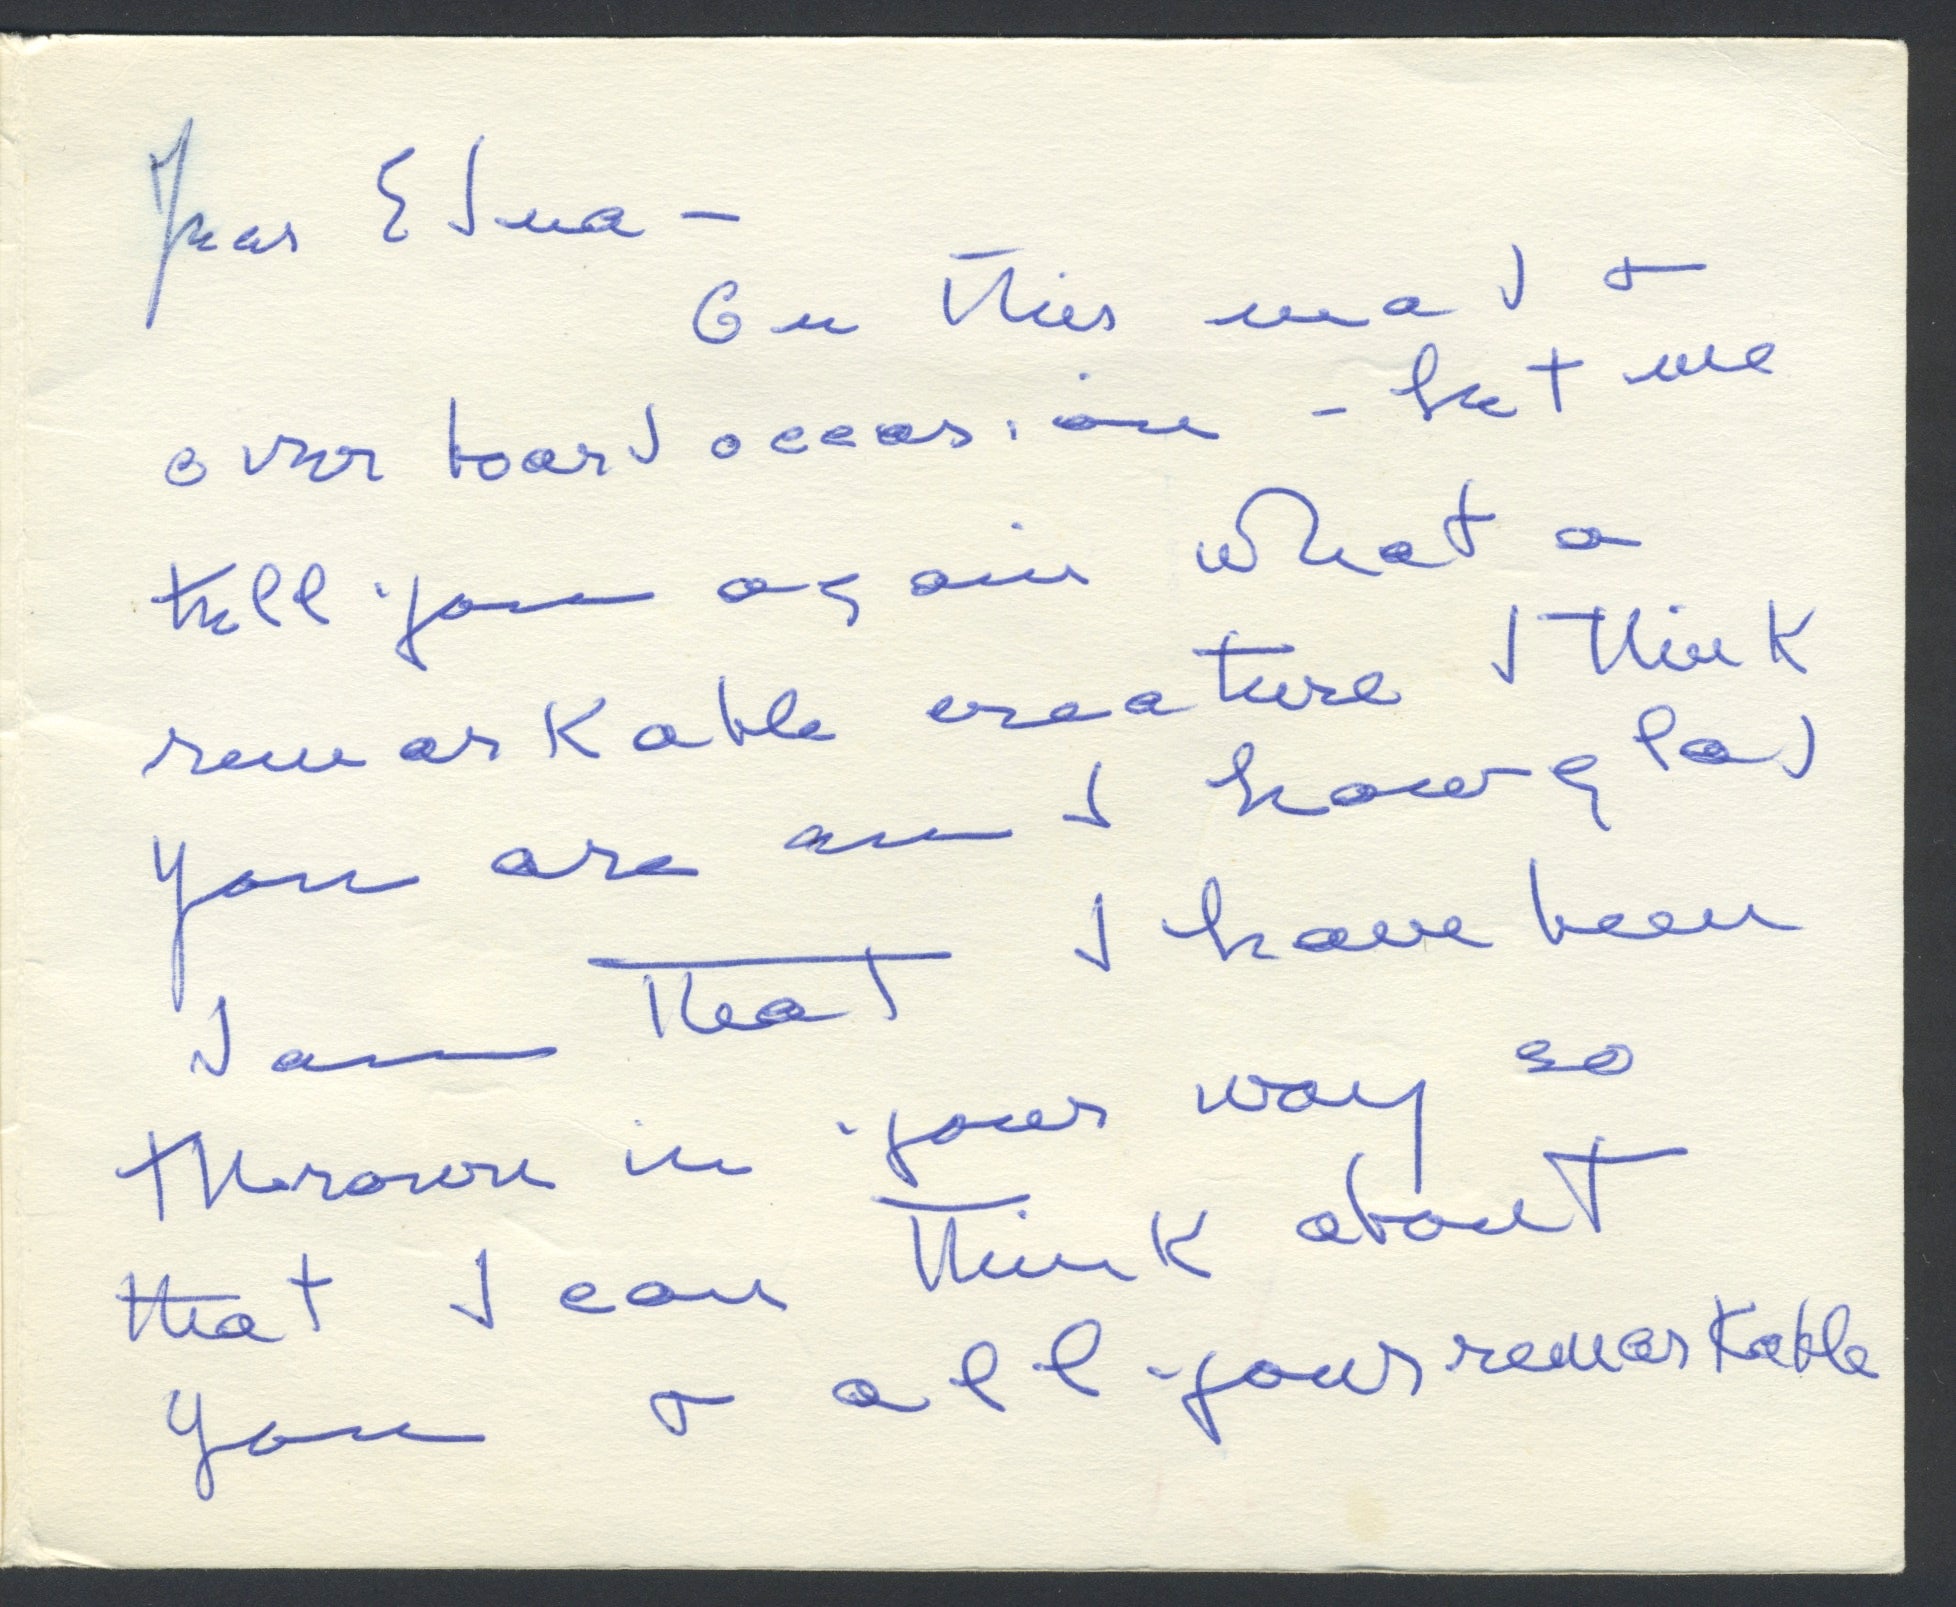 Dear Edna –
On this mad &
overboard occasion – let me
tell you again what a
remarkable creature I think
you are and how glad
I am that I have been
thrown in your way so
that I can think about
you & all your remarkable